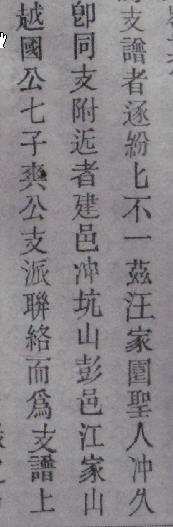 支譜者逐紛匕不一茲汪家園聖人冲久
卽同支附近者建邑冲坑山彭邑江家山
越國公七子爽公支派聯絡而爲支譜上